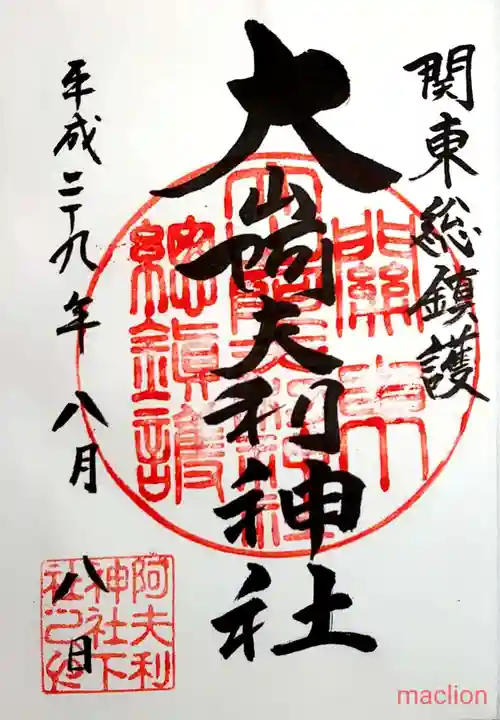 関東総鎮護
大山阿夫利神社
平成二十九年八月八日
關東
總鎮護
阿夫利
神社下
社之印
maclion